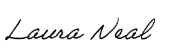 Laura Neal